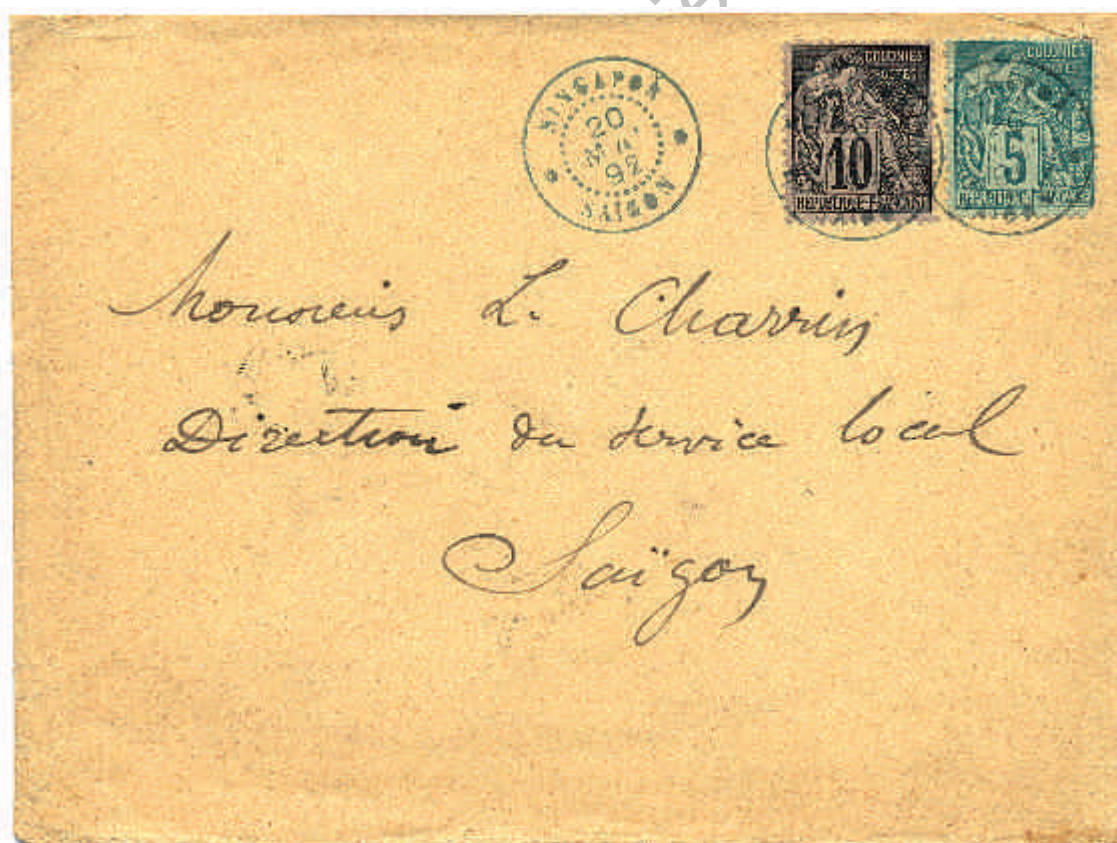 SINGAPOR
20
92
SAIGON
COLONIES
POSTES
10
REPUBLIQUE FRANCAISE
COLONIES
5
REPUBLIQUE FRANCAISE
Monsieur L. Charrin
Direction du Service local
Saïgon